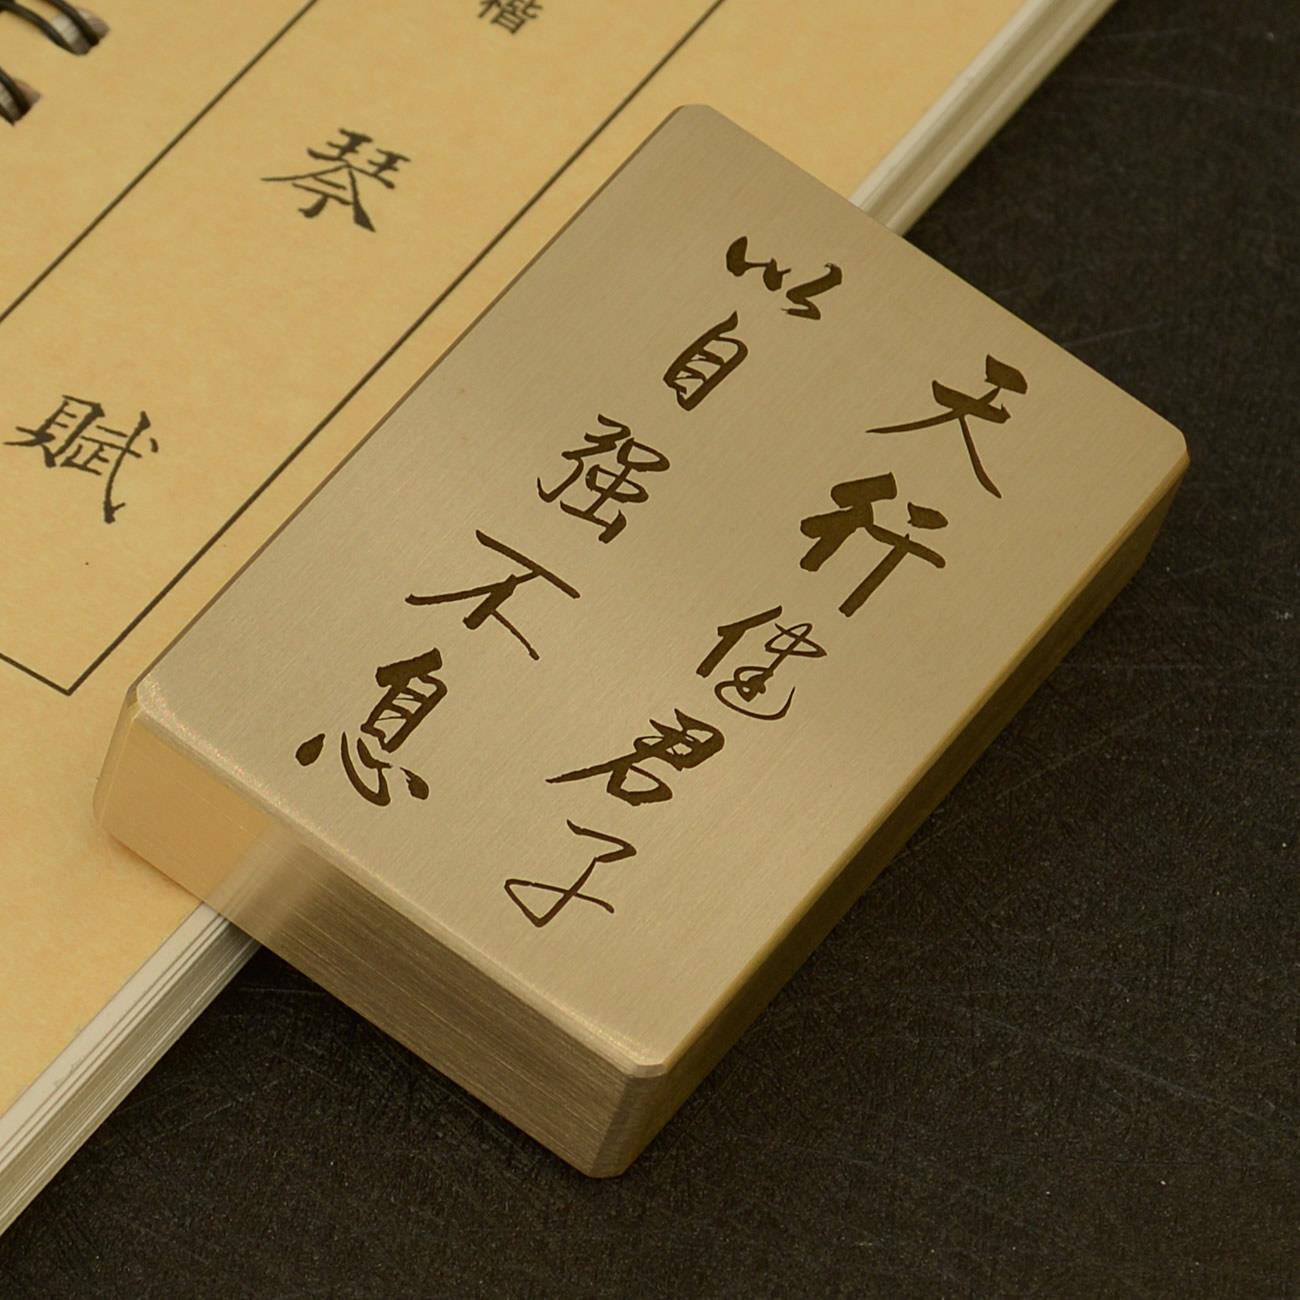 天行健君子
以自强不息
楷
琴
赋